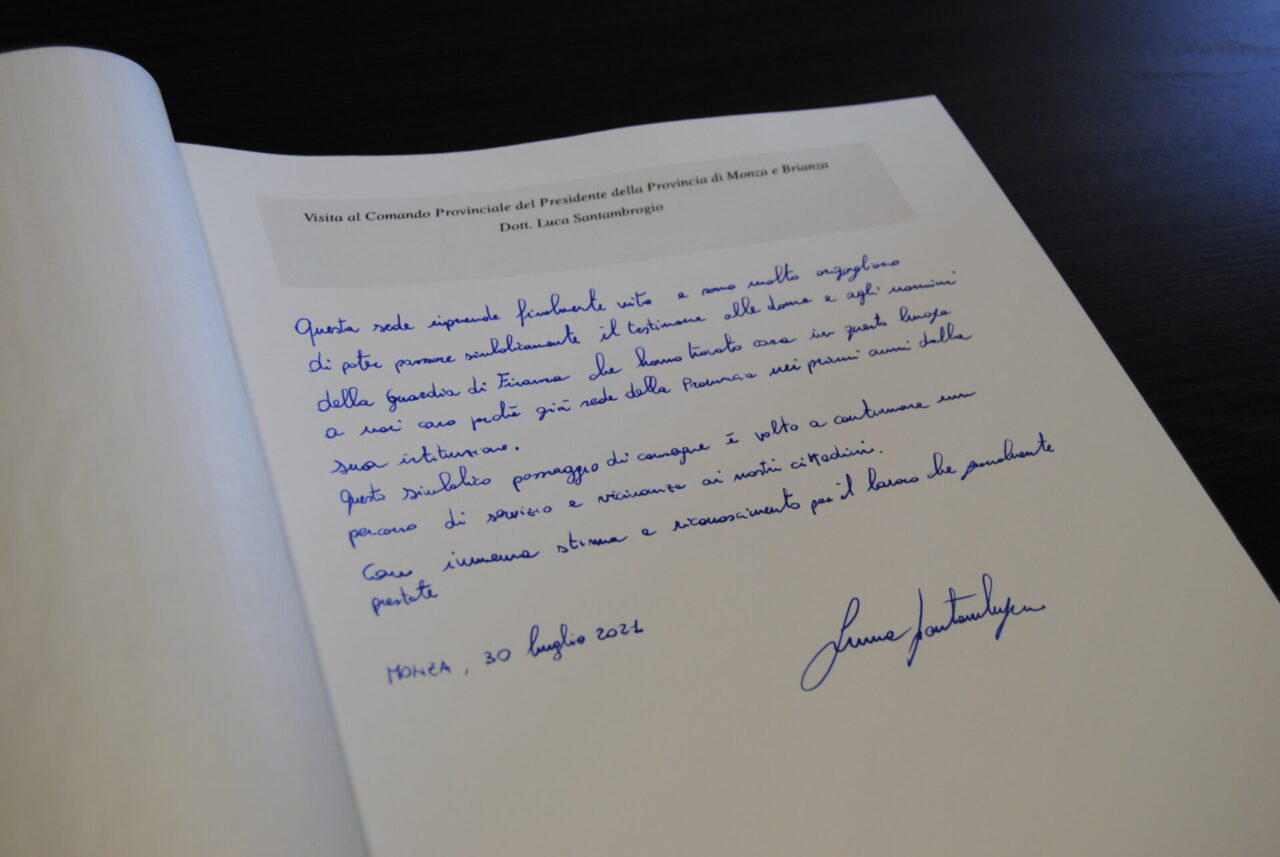 Visita al Comando Provinciale del Presidente della Provincia di Monza e Brianza
Dott. Luca Santambrogio
Questa sede riprende finalmente vita e sono molto orgoglioso
di poter passare simbolicamente il testimone alle donne e agli uomini
della Guardia di Finanza che hanno trovato casa in questo luogo
a noi caro perchè già sede della Provincia nei primi anni dalla
sua istituzione.
Questo simbolico passaggio di consegne è volto a continuare un
percorso di servizio e vicinanza ai nostri cittadini.
Con immensa stima e riconoscimento per il lavoro che
prestate
MONZA, 30 luglio 2021
Luca Santambrogio